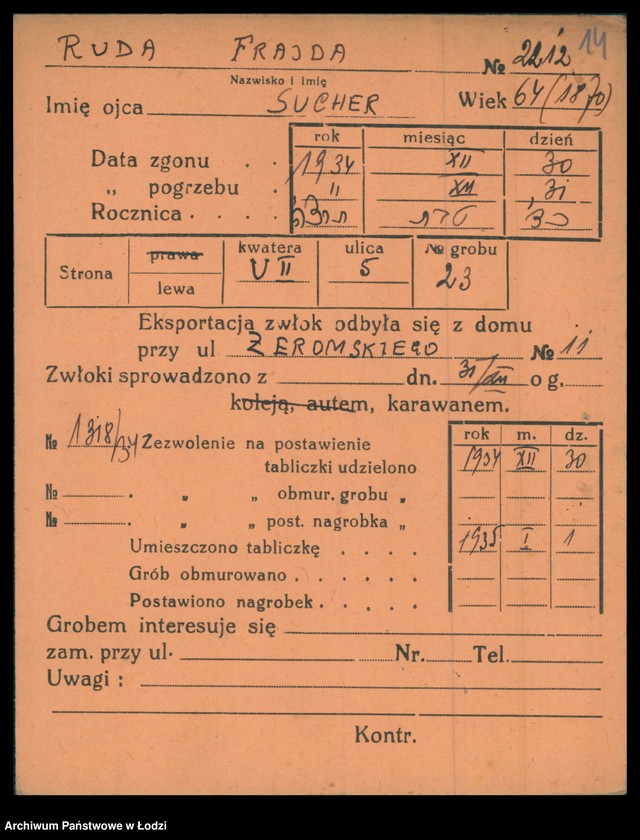 RUDA FRAJDA № 2212 14
Nazwisko i imię
Imię ojca SUCHER Wiek 64 (1870)
rok miesiąc dzień
Data zgonu . . 1934 XII 30
„ pogrzebu . " XII 31
Rocznica . . . .
Strona prawa kwatera ulica № grobu
lewa VII 5 23
Eksportacja zwłok odbyła się z domu
przy ul ŻEROMSKIEGO № 11
Zwłoki sprowadzono z dn. 31/XII o g.
koleją, autem, karawanem.
rok m. dz.
№ 1318/34 Zezwolenie na postawienie
tabliczki udzielono 1934 XII 30
№ . „ „ obmur. grobu „
№ . „ „ post. nagrobka „
Umieszczono tabliczkę . . . . 1935 I 1
Grób obmurowano . . . . .
Postawiono nagrobek . . . . .
Grobem interesuje się
zam. przy ul. Nr. Tel.
Uwagi :
Kontr.
Archiwum Państwowe w Łodzi